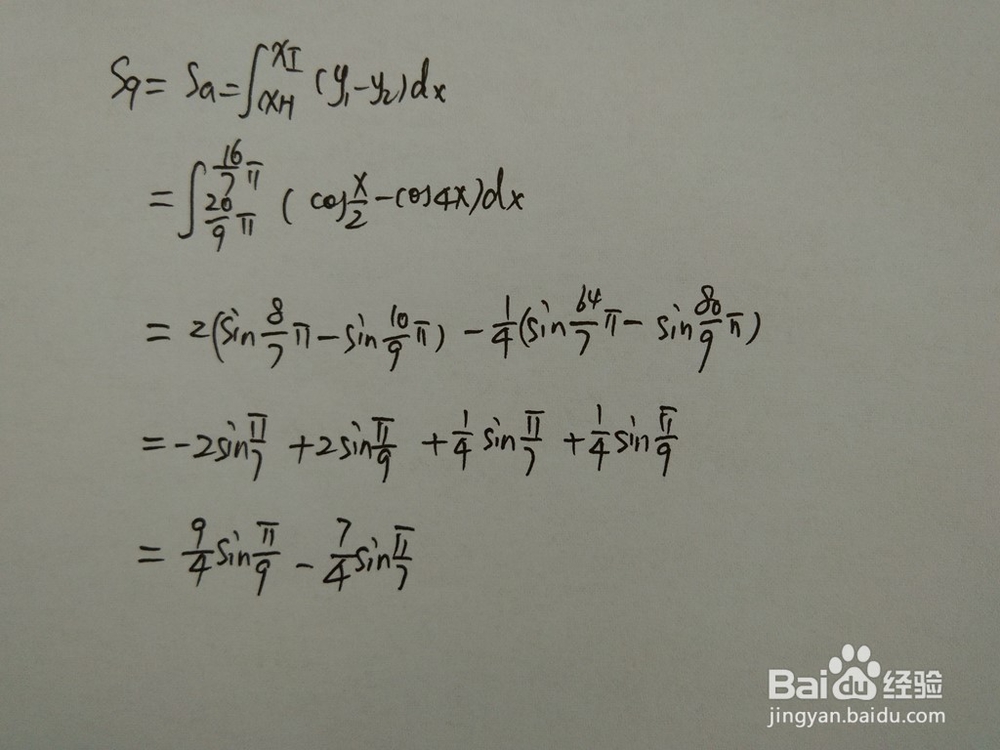 S9 = Sa = ∫_{xH}^{xI} (y₁-y₂)dx
= ∫_{20/9 π}^{16/7 π} (cos x/2 - cos4x)dx
= 2(sin 8/7 π - sin 10/9 π) - 1/4 (sin 64/7 π - sin 80/9 π)
= -2sin π/7 + 2sin π/9 + 1/4 sin π/7 + 1/4 sin π/9
= 9/4 sin π/9 - 7/4 sin π/7
Baidu 经验
jingyan.baidu.com